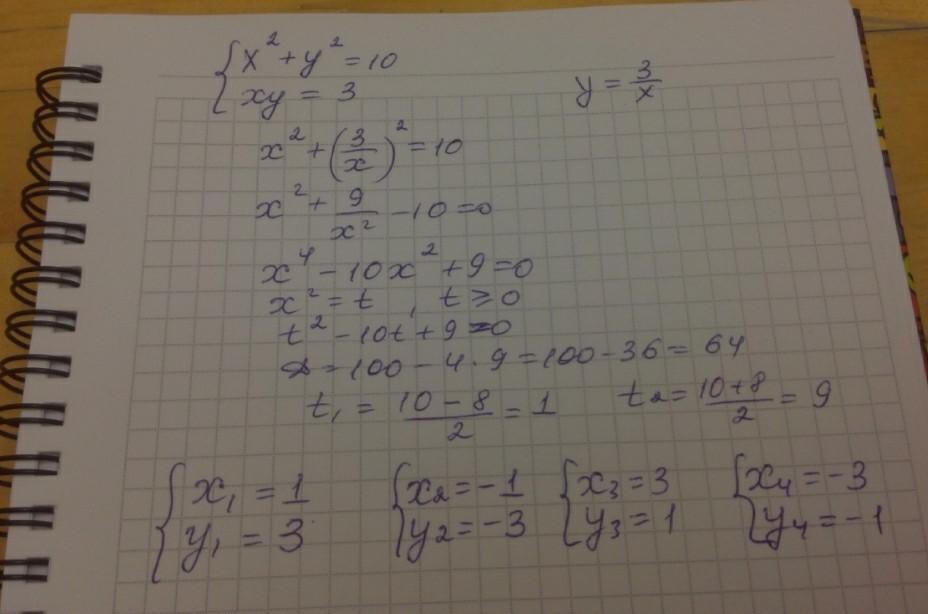 { x² + y² = 10
{ xy = 3    y = 3/x
x² + (3/x)² = 10
x² + 9/x² - 10 = 0
x⁴ - 10x² + 9 = 0
x² = t , t ≥ 0
t² - 10t + 9 = 0
D = 100 - 4·9 = 100 - 36 = 64
t₁ = (10 - 8)/2 = 1    t₂ = (10 + 8)/2 = 9
{ x₁ = 1    { x₂ = -1    { x₃ = 3    { x₄ = -3
{ y₁ = 3    { y₂ = -3    { y₃ = 1    { y₄ = -1